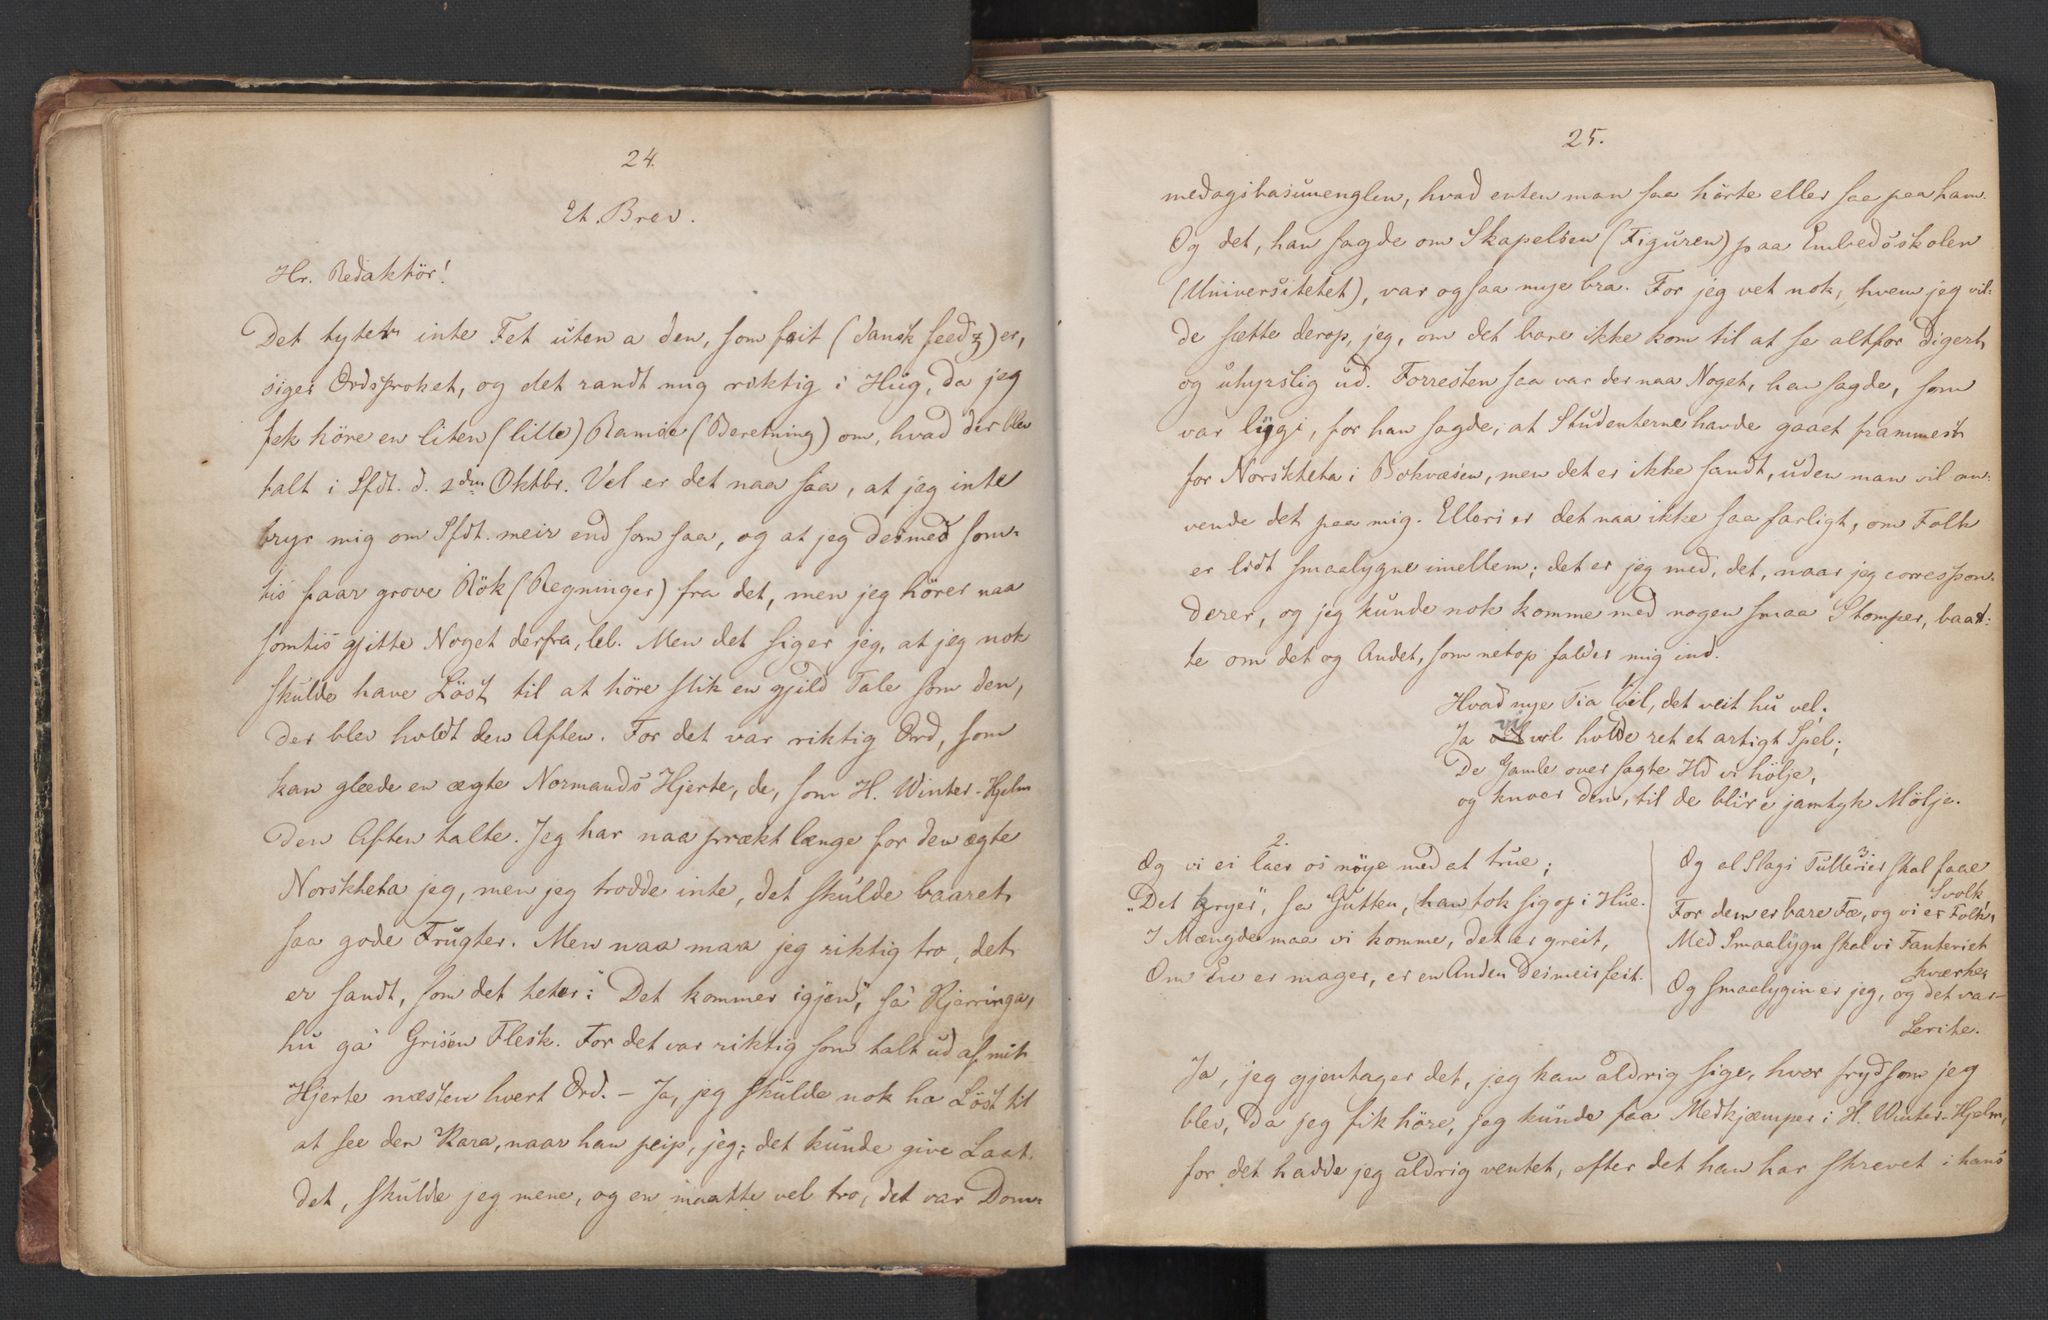 24.
Et Brev.
Hr. Redaktör!
Det tyter inte Fet uten a den, som feit (dansk feed) er,
siger Ordsproket, og det randt mig riktig i Hug, da jeg
fek höre en liten (lille) Ramse (Beretning) om, hvad der blev
talt i Sfdt. d. 2den Oktbr. Vel er det naa saa, at jeg inte
bryr mig om Sfdt. meir end som saa, og at jeg desmed som-
tis faar grove Rök (Regninger) fra det, men jeg hörer naa
somtis gjitte Noget derfra, lel. Men det siger jeg, at jeg nok
skulde have Löst til at höre slik en gjild Tale som den,
der blev holdt den Aften. For det var riktig Ord, som
kan glæde en ægte Normands Hjerte, de, som H. Winter-Hjelm
den Aften talte. Jeg har naa prækt længe for den ægte
Norskheta jeg, men jeg trodde inte, det skulde baaret
saa gode Frugter. Men naa maa jeg riktig tro, det
er sandt, som det heter: "Det kommer igjen", sa' Kjærringa,
hu ga' Grisen Flesk. For det var riktig som talt ud af mit
Hjerte næsten hvert Ord. – Ja, jeg skulde nok ha Löst til
at see den Kara, naar han peip, jeg; det kunde give Laat
det, skulde jeg mene, og en maatte vel tro, det var Dom-
25.
medagsbasunenglen, hvad enten man saa hörte eller saa paa ham.
Og det, han sagde om Skapelsen (Figuren) paa Embedsskolen
(Universitetet), var ogsaa mye bra. For jeg vet nok, hvem jeg vil-
de sætte derop, jeg, om det bare ikke kom til at se altfor digert
og uhyrslig ud. Forresten saa var der naa Noget, han sagde, som
var lygi, for han sagde, at Studenterne havde gaaet frammest
for Norskheta i Bokvæsen, men det er ikke sandt, uden man vil an-
vende det paa mig. Ellers er det naa ikke saa farligt, om Folk
er lidt smaalygne imellem; det er jeg med, det, naar jeg correspon-
derer, og jeg kunde nok komme med nogen smaa Stomper, baad-
te om det og Andet, som netop falder mig ind.
1.
Hvad nye Tia vil, det veit hu vel;
Ja vi vil holde ret et artigt Spel;
De Gamle over sagte Ild vi hölje,
og knoer den, til de blir i jamtyk Mölje.
2.
Og vi ei laer os nöye med at true;
"Det kryes", sa Gutten, han tok sig op i Hue.
I Mængde maa vi komme, det er greit,
Om Ein er mager, er en Anden desmeir feit.
3.
Og el Slags Tullerier skal faae
Svolk,
For dem er bare Fæ, og vi er Folk,
Med Smaalygn skal vi Fanteriet
sværke,
Og smaalygin er jeg, og det var-
Lerike.
Ja, jeg gjentager det, jeg kan aldrig sige, hvor frydsom jeg
blev, da jeg fik höre, jeg kunde faa Medkjæmper i H. Winter-Hjelm,
for det hadde jeg aldrig ventet, efter det han har skrevet i hans